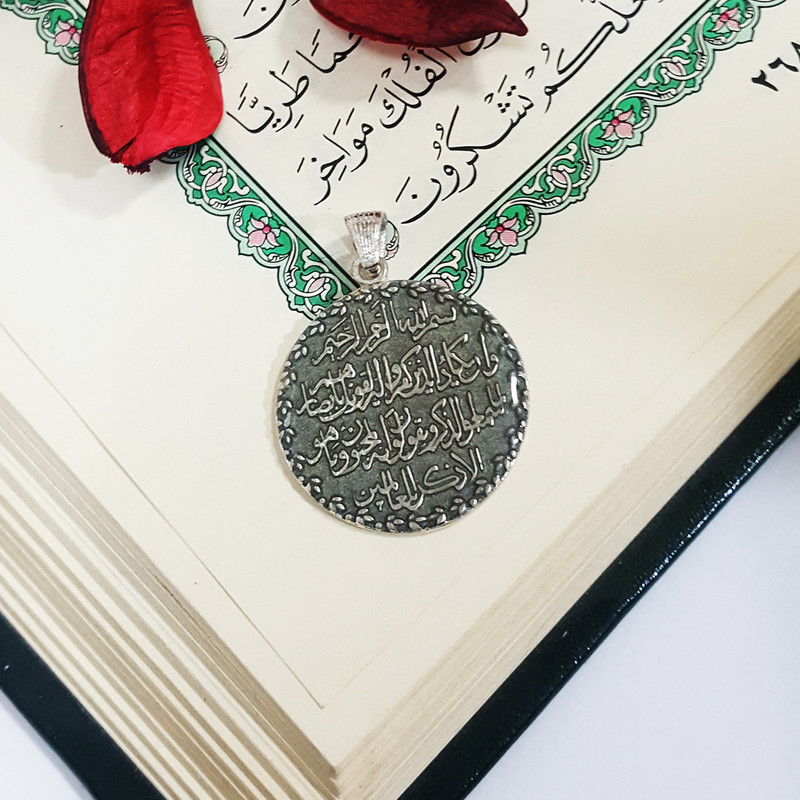 طَرِيًّا
الْفُلْكَ مَوَاخِرَ
تَشْكُرُونَ
بسم الله الرحمن الرحيم
وان يكاد الذين كفروا ليزلقونك بابصارهم
لما سمعوا الذكر ويقولون انه لمجنون وما هو
الا ذكر للعالمين